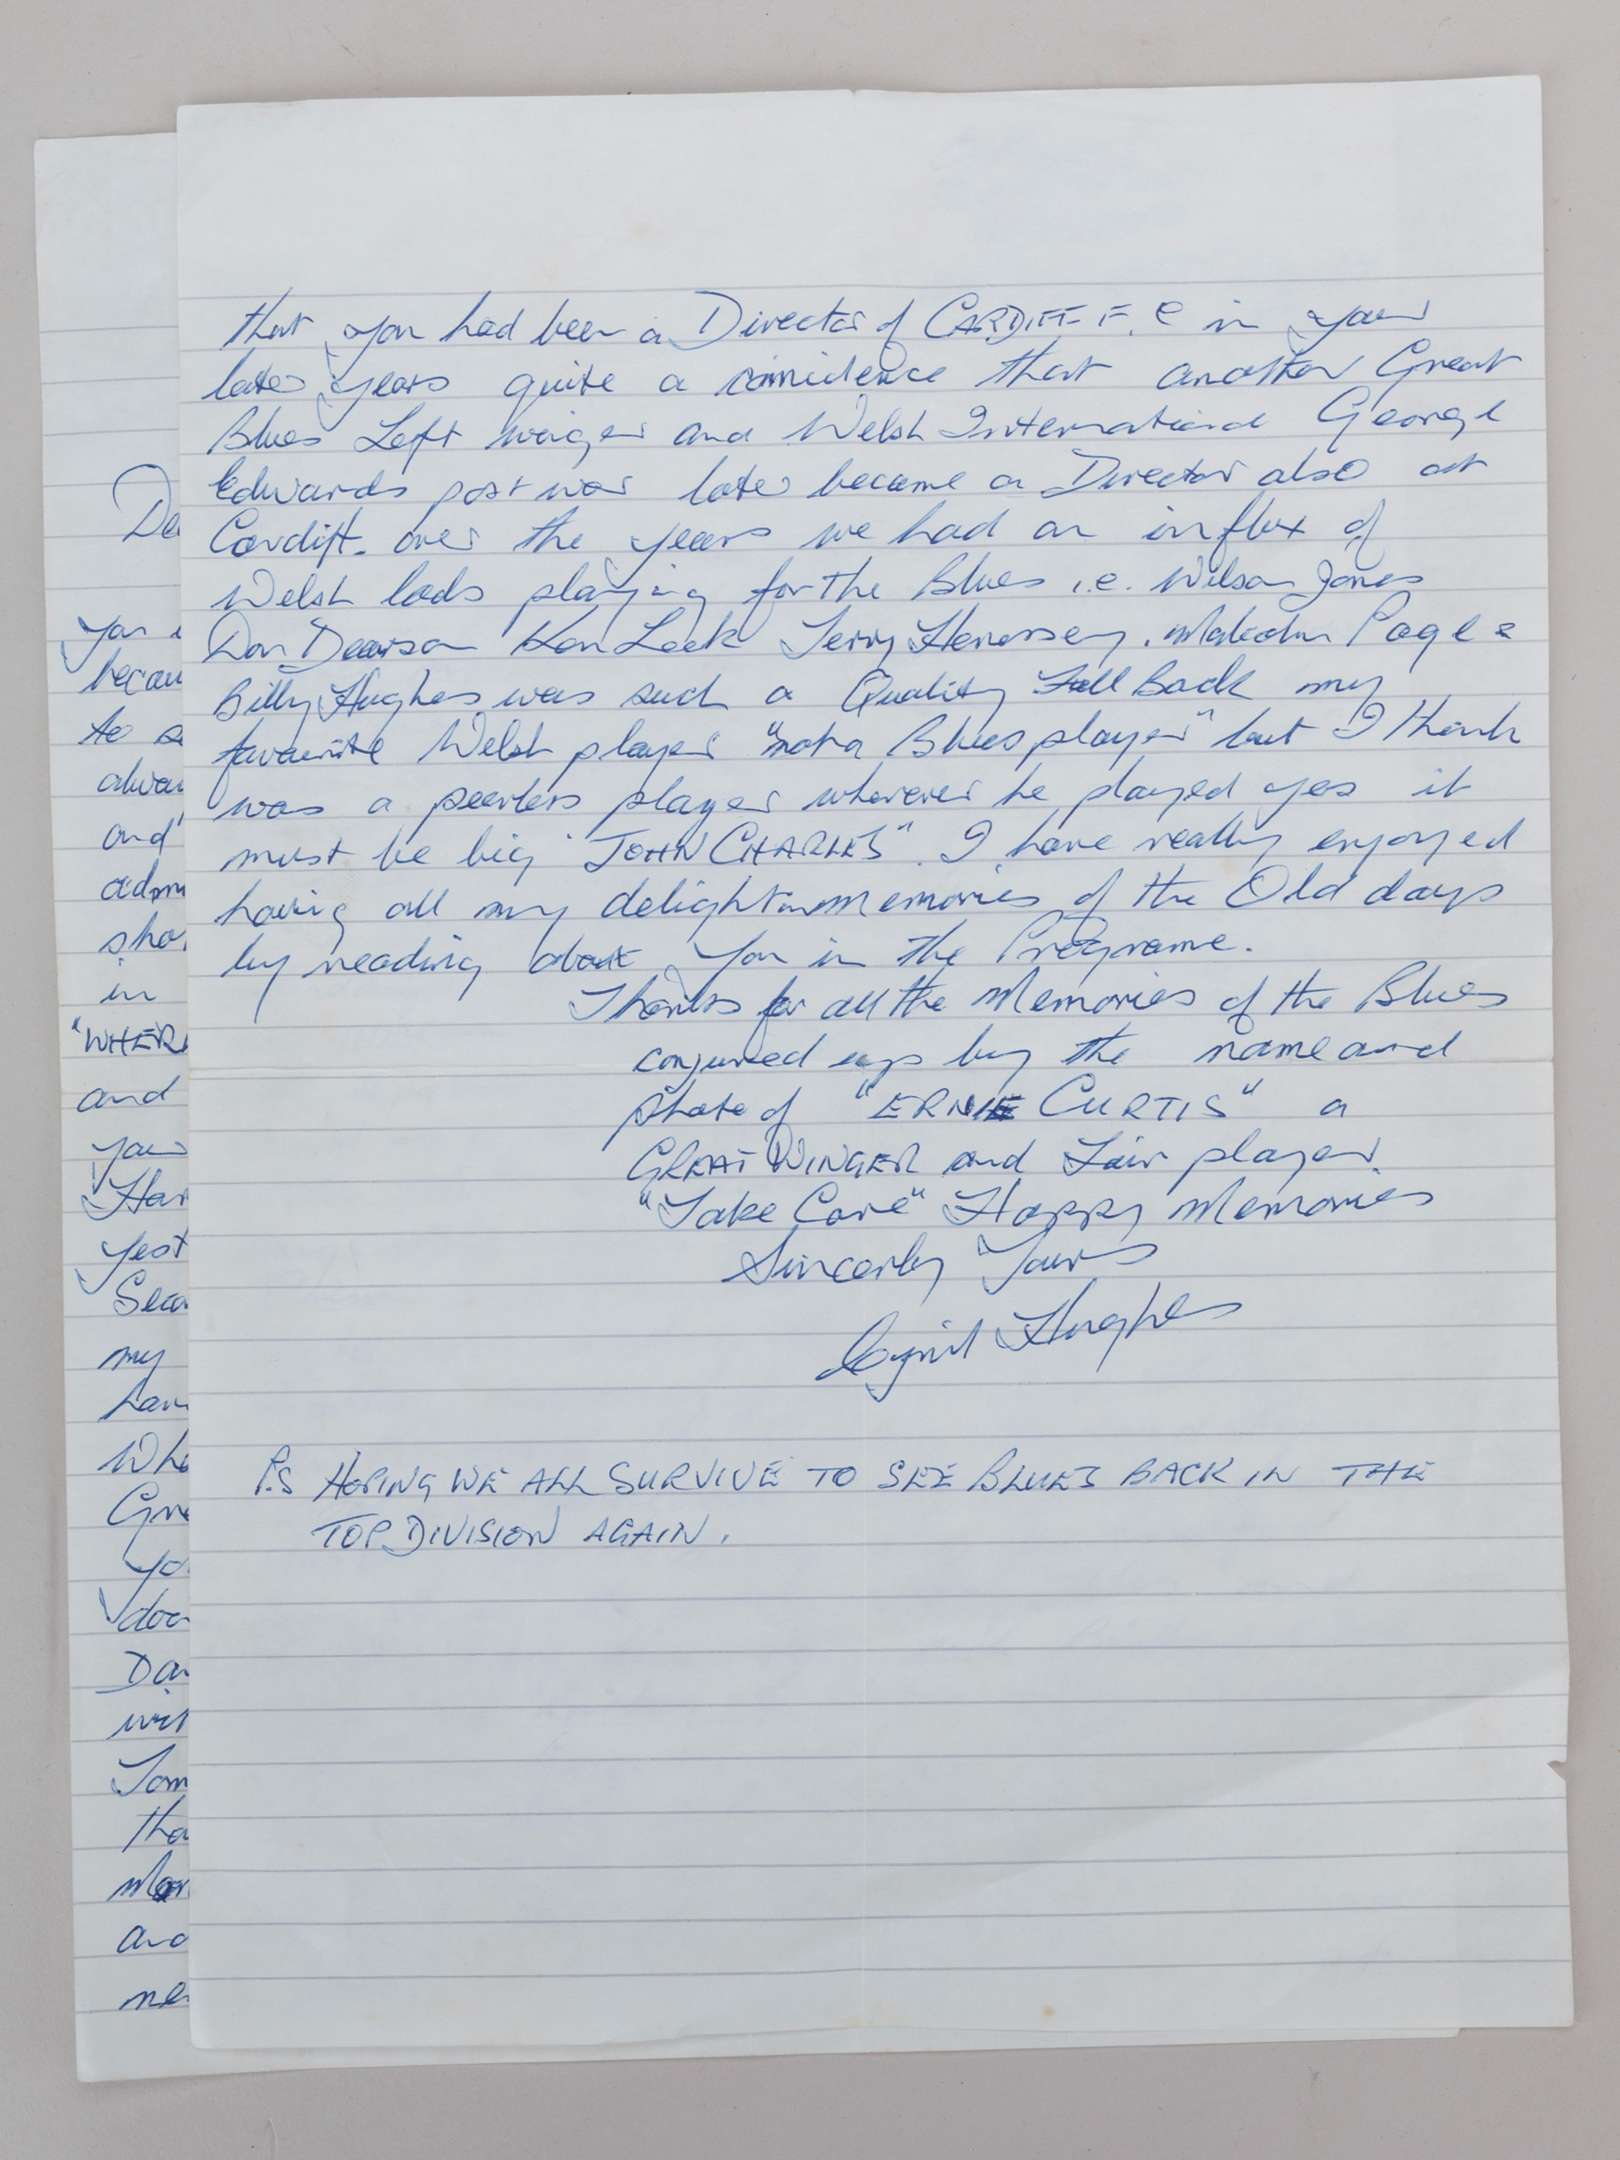 that you had been a Director of CARDIFF F.C in your
later years quite a coincidence that another Great
Blues Left winger and Welsh International George
Edwards post war later became a Director also at
Cardiff. over the years we had an influx of
Welsh lads playing for the Blues i.e. Wilson Jones
Don Dearson Ken Leek Terry Henessey. Malcolm Page &
Billy Hughes was such a Quality Full Back my
favourite Welsh player "not a Blues player" but I think
was a peerless player wherever he played yes it
must be big "JOHN CHARLES". I have really enjoyed
having all my delight memories of the Old days
by reading about you in the Programe.
Thanks for all the Memories of the Blues
conjured up by the name and
photo of "ERNIE CURTIS" a
GREAT WINGER and Fair player.
"Take Care" Happy Memories
Sincerly Yours
Cyril Hughes
P.S HOPING WE ALL SURVIVE TO SEE BLUES BACK IN THE
TOP DIVISION AGAIN.
De
You
becau
to s
alwa
and
adm
sho
in
"WHER
and
your
Har
yest
Seco
my
hav
Whe
Gre
yo
door
Da
wit
Tom
tha
and
ne